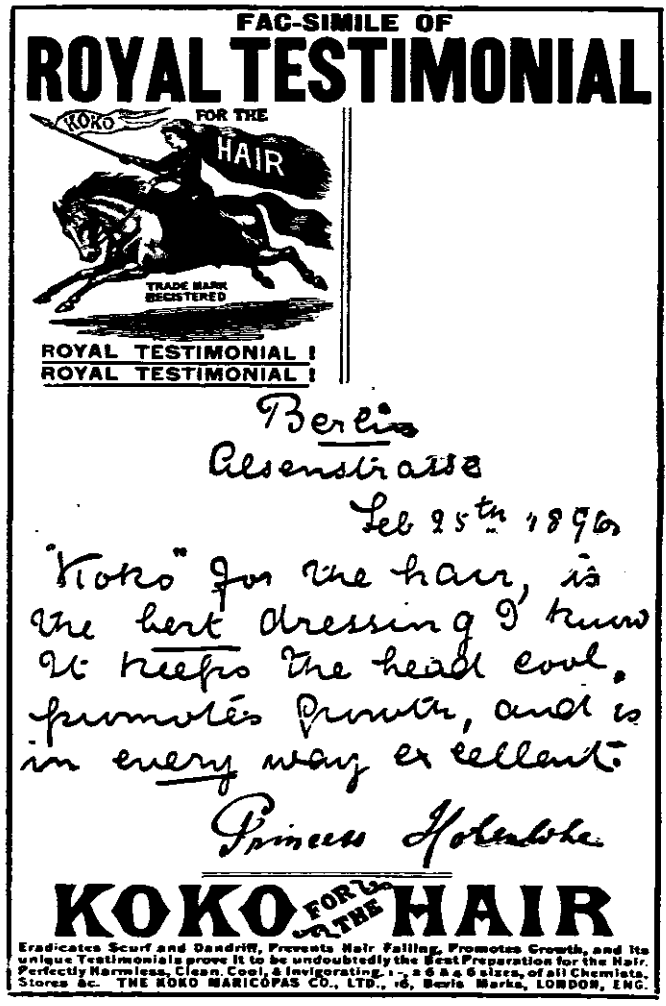 FAC-SIMILE OF
ROYAL TESTIMONIAL
KOKO
FOR THE
HAIR
TRADE MARK
REGISTERED
ROYAL TESTIMONIAL !
ROYAL TESTIMONIAL !
Berlin
Alsenstrasse
Feb 25th 1896
"Koko" for the hair, is
the best dressing I know
It keeps the head cool,
promotes growth, and is
in every way excellent.
Princess Hohenlohe
KOKO FOR THE HAIR
Eradicates Scurf and Dandriff, Prevents Hair Falling, Promotes Growth, and its
unique Testimonials prove it to be undoubtedly the Best Preparation for the Hair.
Perfectly Harmless, Clean, Cool, & Invigorating. 1-, 2 6 & 4 6 sizes, of all Chemists,
Stores &c. THE KOKO MARICOPAS CO., LTD., 16, Bevis Marks, LONDON, ENG.